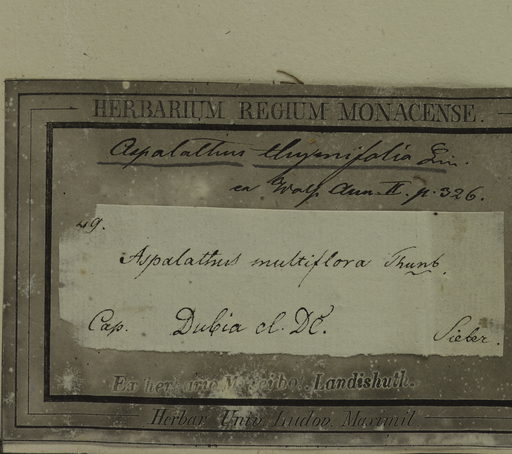 HERBARIUM REGIUM MONACENSE.
Aspalathus thymifolia Lin.
ex Walp. Ann. II. p. 326.
49.
Aspalathus multiflora Thunb.
Cap. Dubia cl. DC. Sieber.
Ex herbario Landishuth.
Herbar. Univ. Ludov. Maximil.